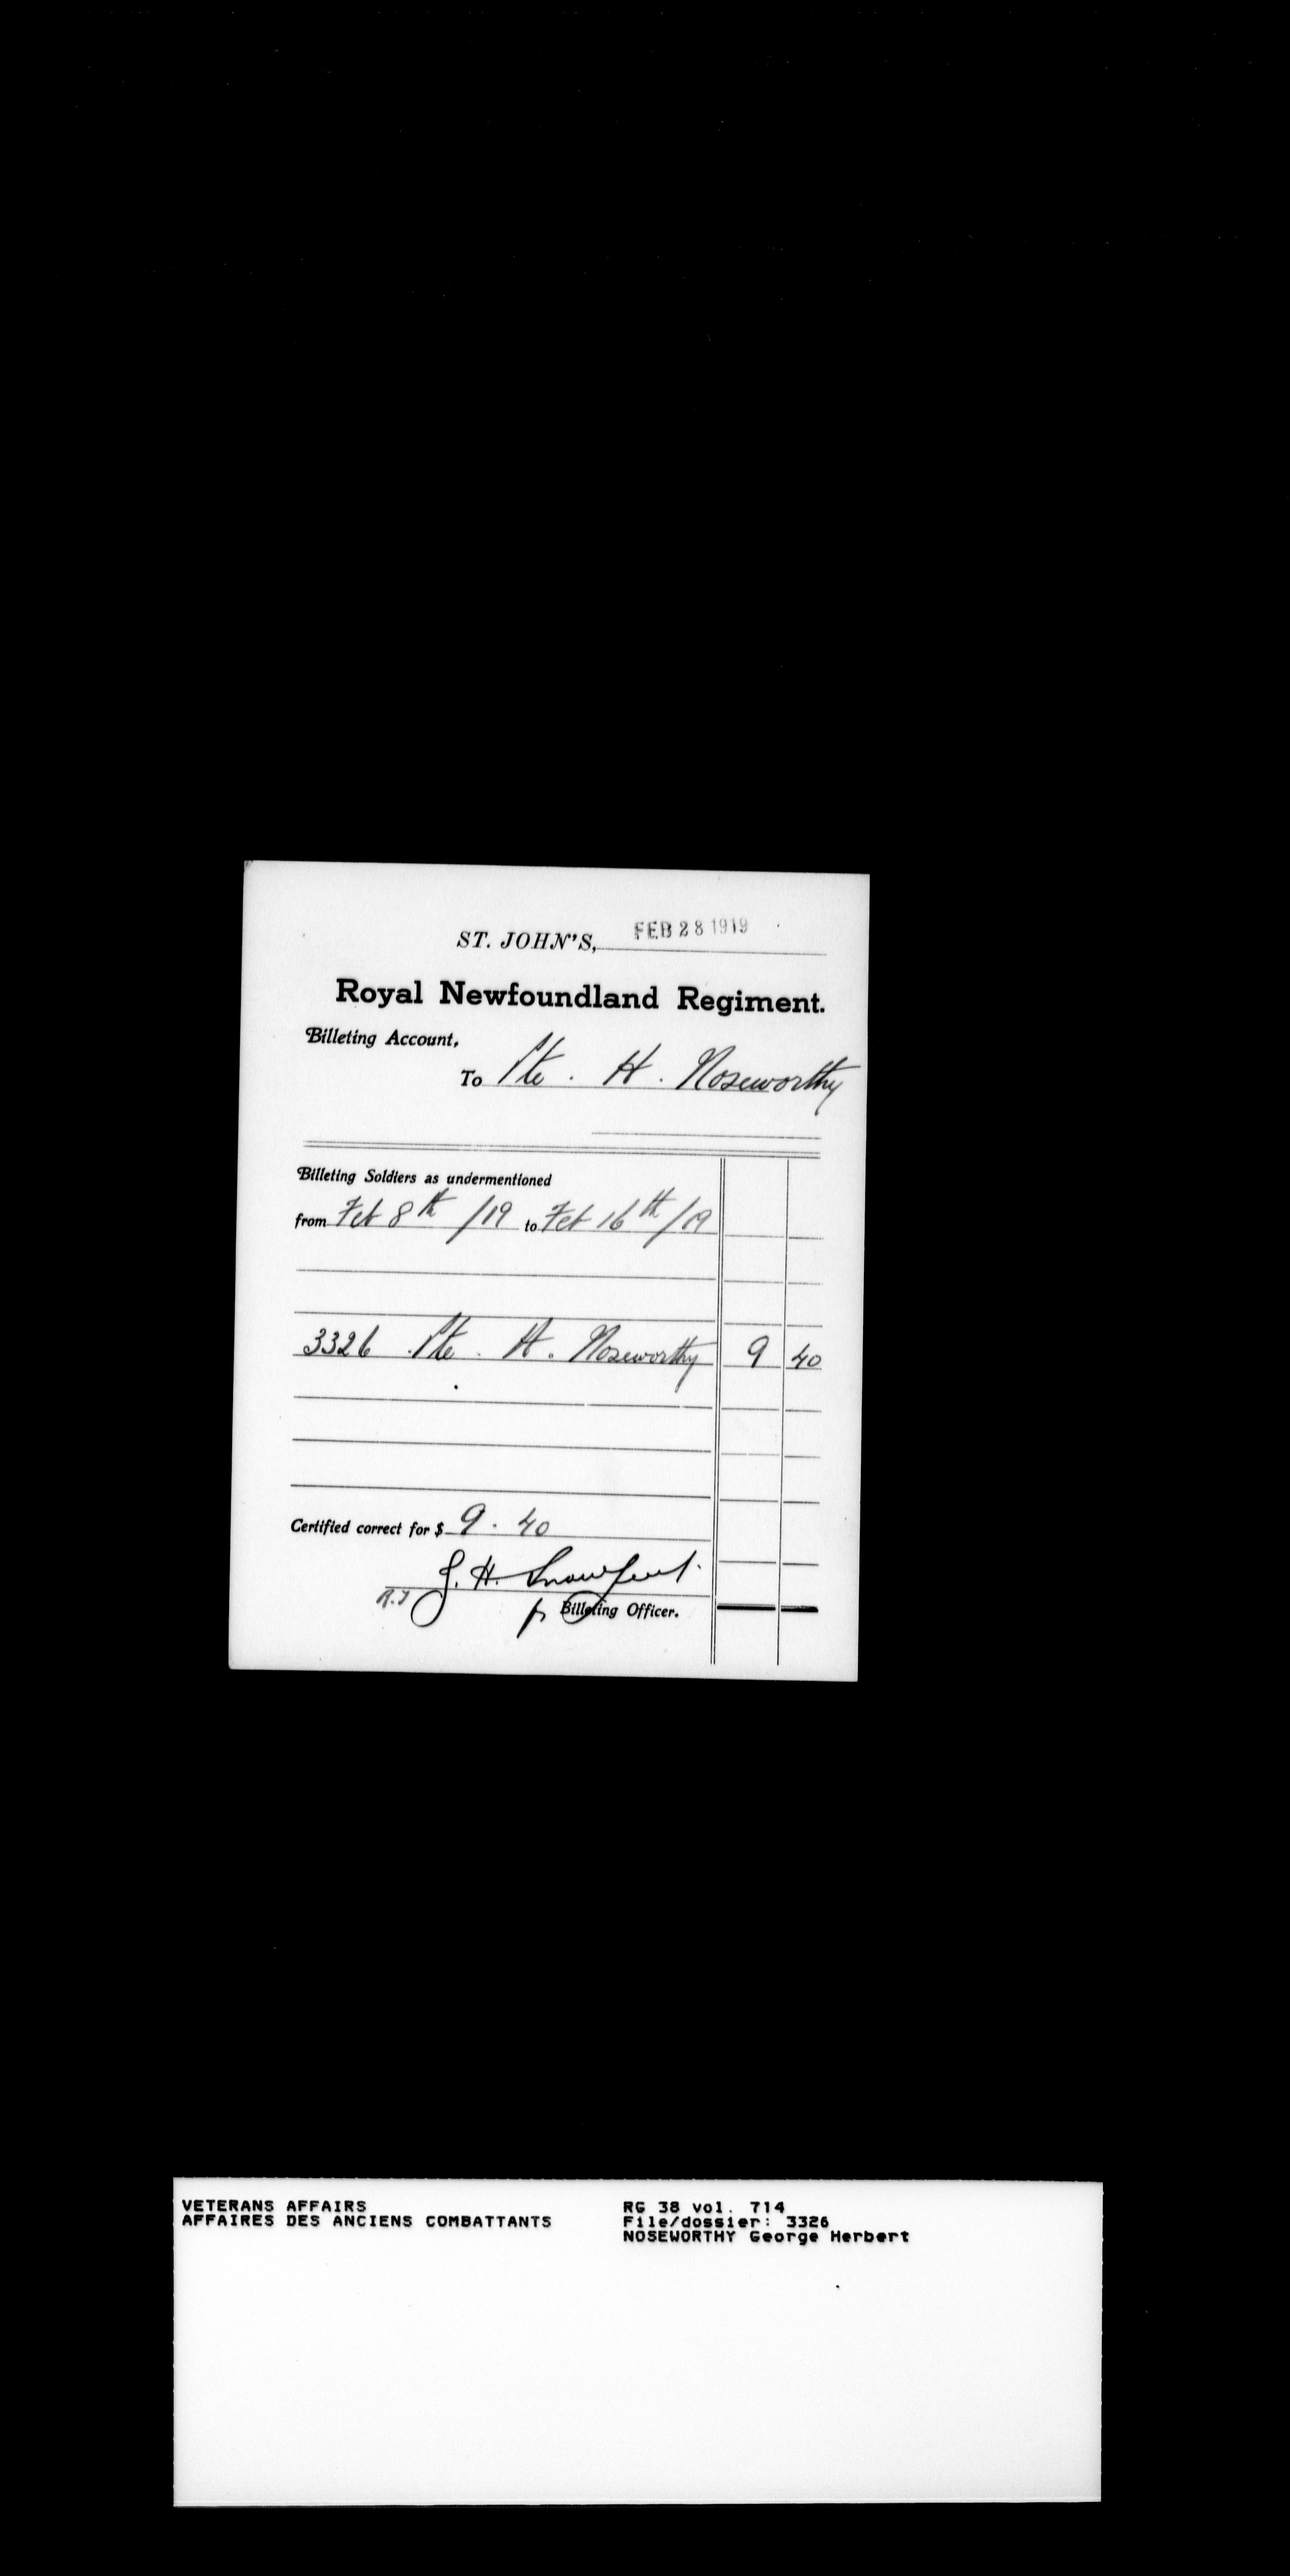 ST. JOHN'S, FEB 28 1919
Royal Newfoundland Regiment.
Billeting Account,
To Pte. H. Noseworthy
Billeting Soldiers as undermentioned
from Feb 8th /19 to Feb 16th /19
3326 Pte. H. Noseworthy 9 40
Certified correct for $ 9.40
J. H.
Billeting Officer.
VETERANS AFFAIRS
AFFAIRES DES ANCIENS COMBATTANTS
RG 38 vol. 714
File/dossier: 3326
NOSEWORTHY George Herbert